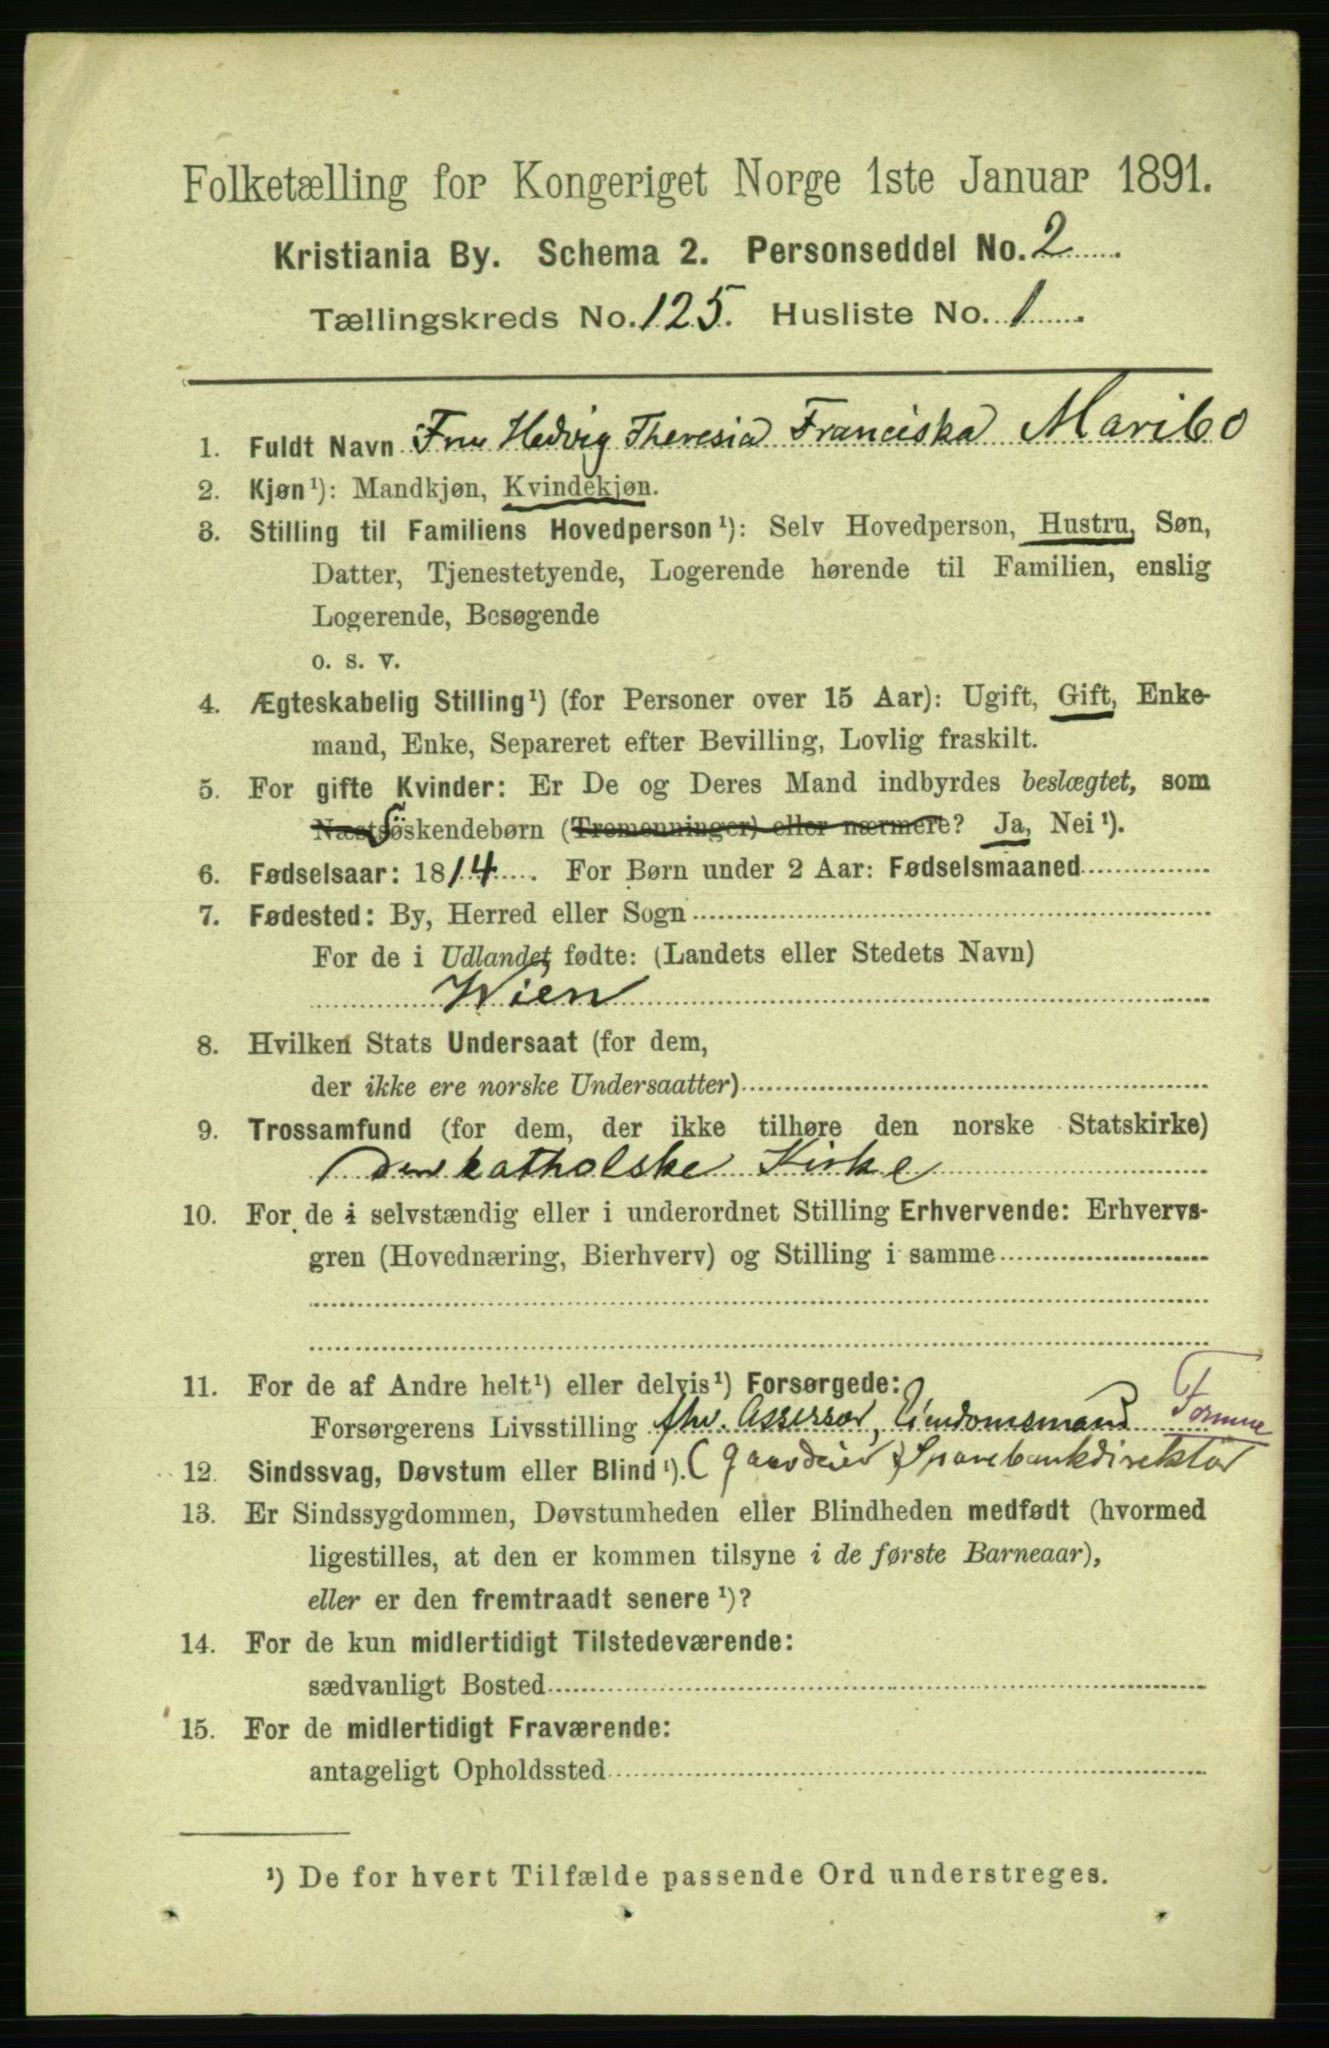 Folketælling for Kongeriget Norge 1ste Januar 1891.
Kristiania By. Schema 2. Personseddel No. 2
Tællingskreds No. 125. Husliste No. 1
1. Fuldt Navn Fru Hedvig Theresia Franciska Maribo
2. Kjøn¹): Mandkjøn, Kvindekjøn.
3. Stilling til Familiens Hovedperson¹): Selv Hovedperson, Hustru, Søn,
Datter, Tjenestetyende, Logerende hørende til Familien, enslig
Logerende, Besøgende
o. s. v.
4. Ægteskabelig Stilling¹) (for Personer over 15 Aar): Ugift, Gift, Enke-
mand, Enke, Separeret efter Bevilling, Lovlig fraskilt.
5. For gifte Kvinder: Er De og Deres Mand indbyrdes beslægtet, som
Næstsøskendebørn (Tremenninger) eller nærmere? Ja, Nei¹).
6. Fødselsaar: 1814. For Børn under 2 Aar: Fødselsmaaned
7. Fødested: By, Herred eller Sogn
For de i Udlandet fødte: (Landets eller Stedets Navn)
Wien
8. Hvilken Stats Undersaat (for dem,
der ikke ere norske Undersaatter)
9. Trossamfund (for dem, der ikke tilhøre den norske Statskirke)
Den katholske Kirke
10. For de i selvstændig eller i underordnet Stilling Erhvervende: Erhvervs-
gren (Hovednæring, Bierhverv) og Stilling i samme
11. For de af Andre helt¹) eller delvis¹) Forsørgede:
Forsørgerens Livsstilling fhv. Assessor, Eiendomsmand Formue
12. Sindssvag, Døvstum eller Blind¹). (gaardeier Sparebankdirektør
13. Er Sindssygdommen, Døvstumheden eller Blindheden medfødt (hvormed
ligestilles, at den er kommen tilsyne i de første Barneaar),
eller er den fremtraadt senere¹)?
14. For de kun midlertidigt Tilstedeværende:
sædvanligt Bosted
15. For de midlertidigt Fraværende:
antageligt Opholdssted
¹) De for hvert Tilfælde passende Ord understreges.